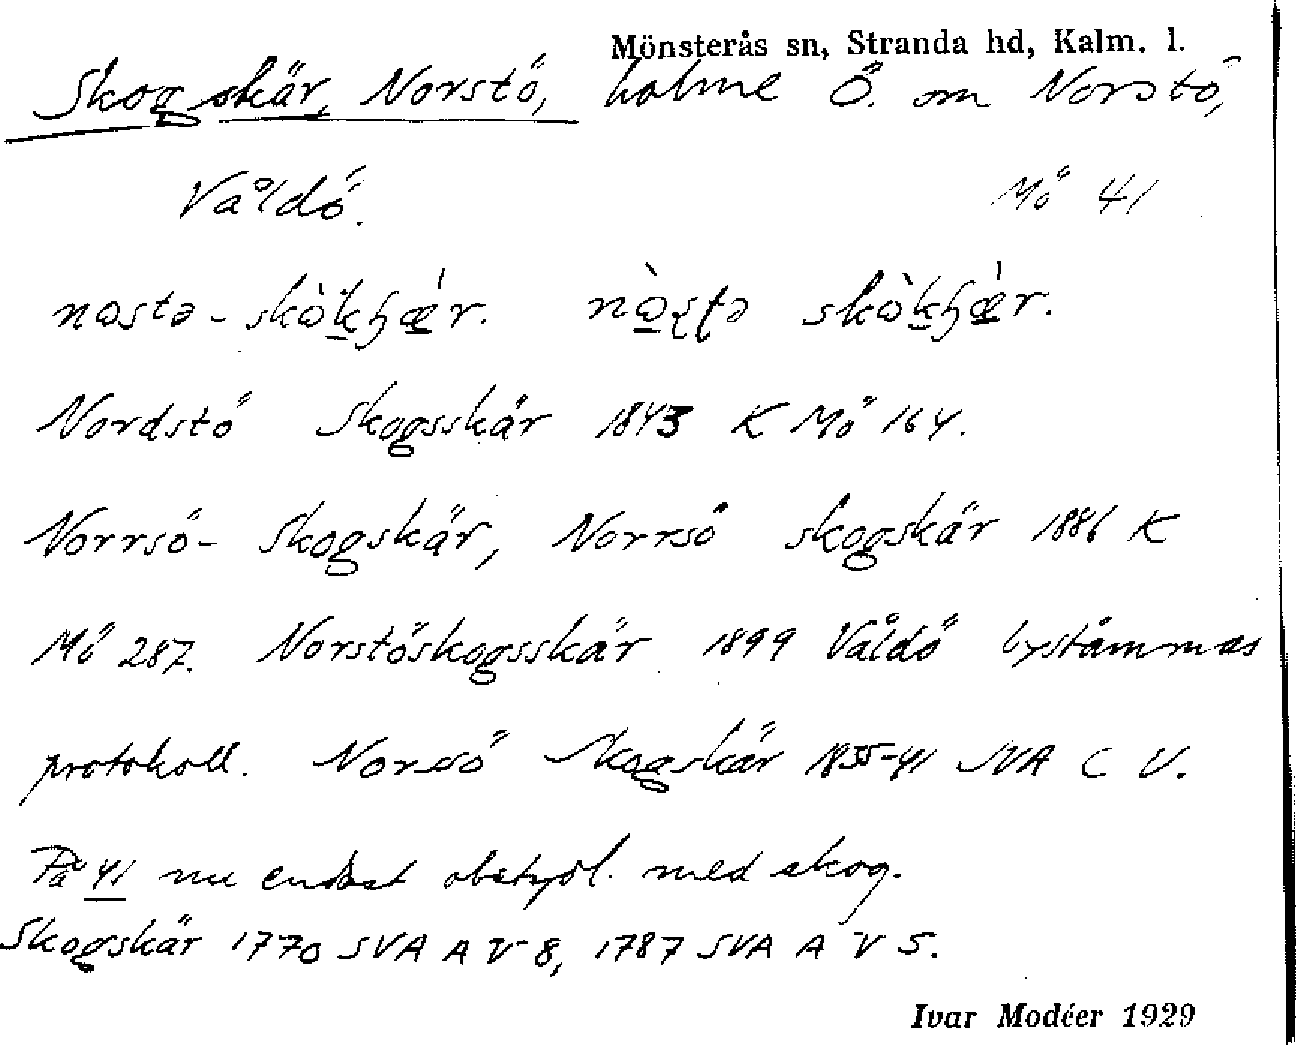 Mönsterås sn, Stranda hd, Kalm. l.
Skogskär, Norstö, holme Ö. om Norstö,
Våldö. Mö 41
nostə-skòkʃǽr. nòʂʈə skòkʃǽr.
Nordstö Skogsskär 1843 K Mö 164.
Norrsö- Skogskär, Norrsö skogskär 1886 K
Mö 287. Norstöskogsskär 1899 Våldö bystämmas
protokoll. Norrsö Skogskär 1855-41 SVA C V.
På 41 nu endast obetydl. med skog.
Skogskär 1770 SVA A V 8, 1787 SVA A V 5.
Ivar Modéer 1929